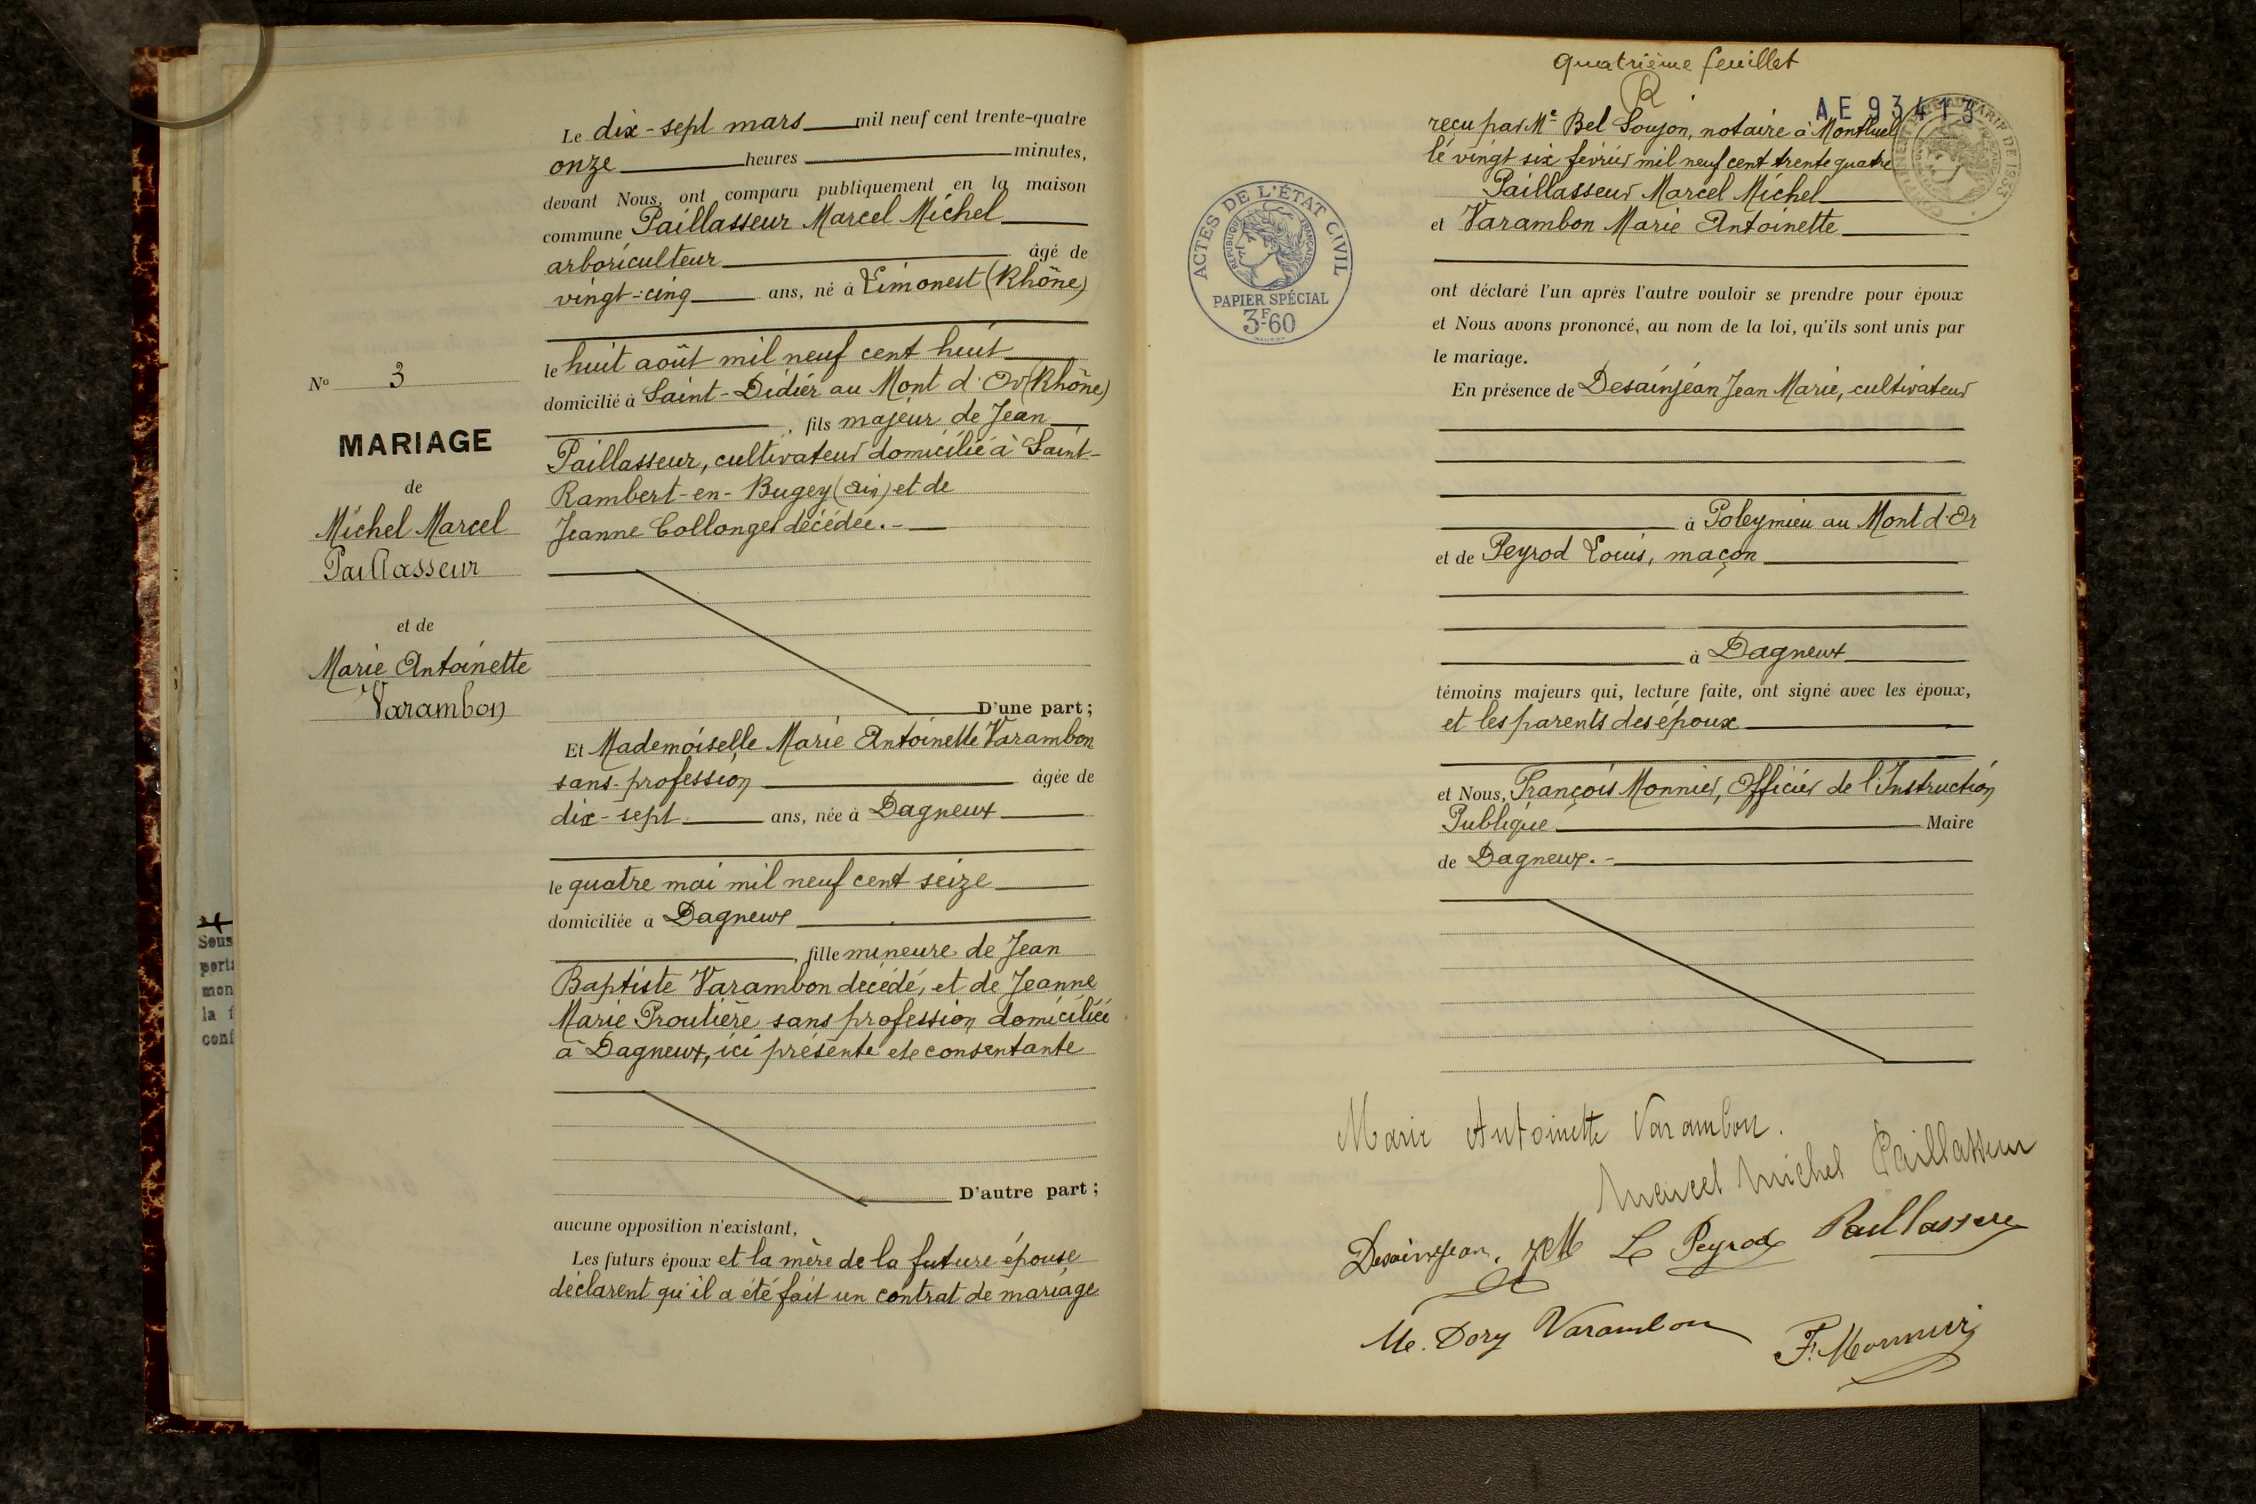 Le dix-sept mars mil neuf cent trente-quatre
onze heures minutes,
devant Nous, ont comparu publiquement en la maison
commune Paillasseur Marcel Michel
arboriculteur âgé de
vingt-cinq ans, né à Limonest (Rhône)
le huit août mil neuf cent huit
domicilié à Saint-Didier au Mont d'Or (Rhône)
, fils majeur de Jean
Paillasseur, cultivateur domicilié à Saint-
Rambert-en-Bugey (Ain) et de
Jeanne Collonges décédée.-
D'une part;
Et Mademoiselle Marie Antoinette Varambon
sans profession âgée de
dix-sept ans, née à Dagneux
le quatre mai mil neuf cent seize
domiciliée à Dagneux
, fille mineure de Jean
Baptiste Varambon décédé, et de Jeanne
Marie Proutière sans profession domiciliée
à Dagneux, ici présente et consentante
D'autre part;
aucune opposition n'existant,
Les futurs époux et la mère de la future épouse
déclarent qu'il a été fait un contrat de mariage
No 3
MARIAGE
de
Michel Marcel
Paillasseur
et de
Marie Antoinette
Varambon
Sous
la
conf
quatrième feuillet
AE 93413
reçu par Me Bel Soujon, notaire à Montluel
le vingt six février mil neuf cent trente quatre
Paillasseur Marcel Michel
et Varambon Marie Antoinette
ont déclaré l'un après l'autre vouloir se prendre pour époux
et Nous avons prononcé, au nom de la loi, qu'ils sont unis par
le mariage.
En présence de Desainjean Jean Marie, cultivateur
à Poleymieu au Mont d'Or
et de Peyrod Louis, maçon
à Dagneux
témoins majeurs qui, lecture faite, ont signé avec les époux,
et les parents des époux
et Nous, François Monnier, Officier de l'Instruction
Publique Maire
de Dagneux.-
ACTES DE L'ÉTAT CIVIL
RÉPUBLIQUE FRANÇAISE
PAPIER SPÉCIAL
3F60
TARIF DE 1933
Marie Antoinette Varambon.
Marcel Michel Paillasseur
Desainjean. JM L Peyrod Paillasseur
Me. Dory Varambon F. Monnier